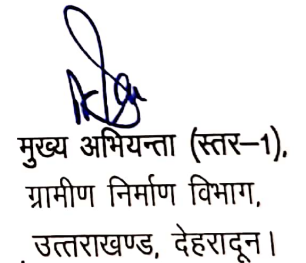 मुख्य अभियन्ता (स्तर–1),
ग्रामीण निर्माण विभाग,
उत्तराखण्ड, देहरादून।